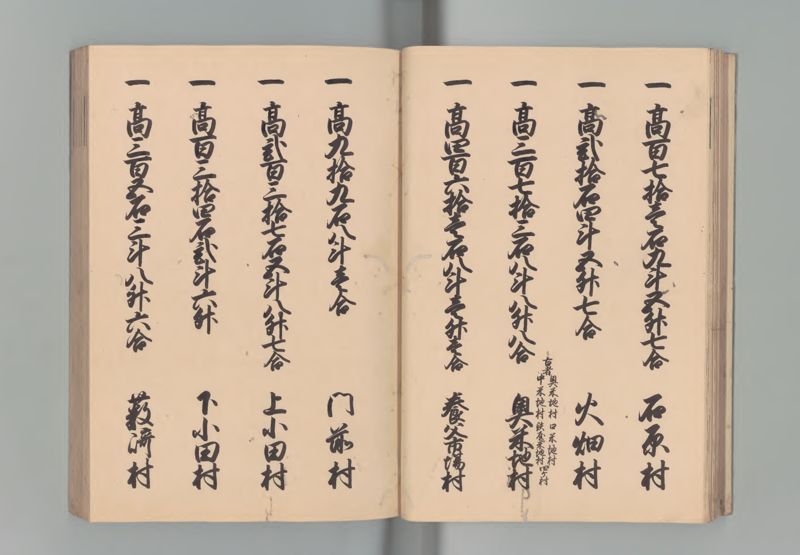 一 高百七拾壱石九斗五升七合 石原村
一 高弐拾石四斗五升七合 火畑村
古者奥米地村 口米地村
中米地村 鉄屋米地村四ケ村
一 高三百七拾三石八斗八升八合 奥米地村
一 高四百六拾壱石八斗壱升壱合 養父市場村
一 高九拾九石八斗壱合 門前村
一 高弐百三拾七石五斗八升七合 上小田村
一 高百三拾四石弐斗六升 下小田村
一 高三百五石三斗八升六合 薮崎村